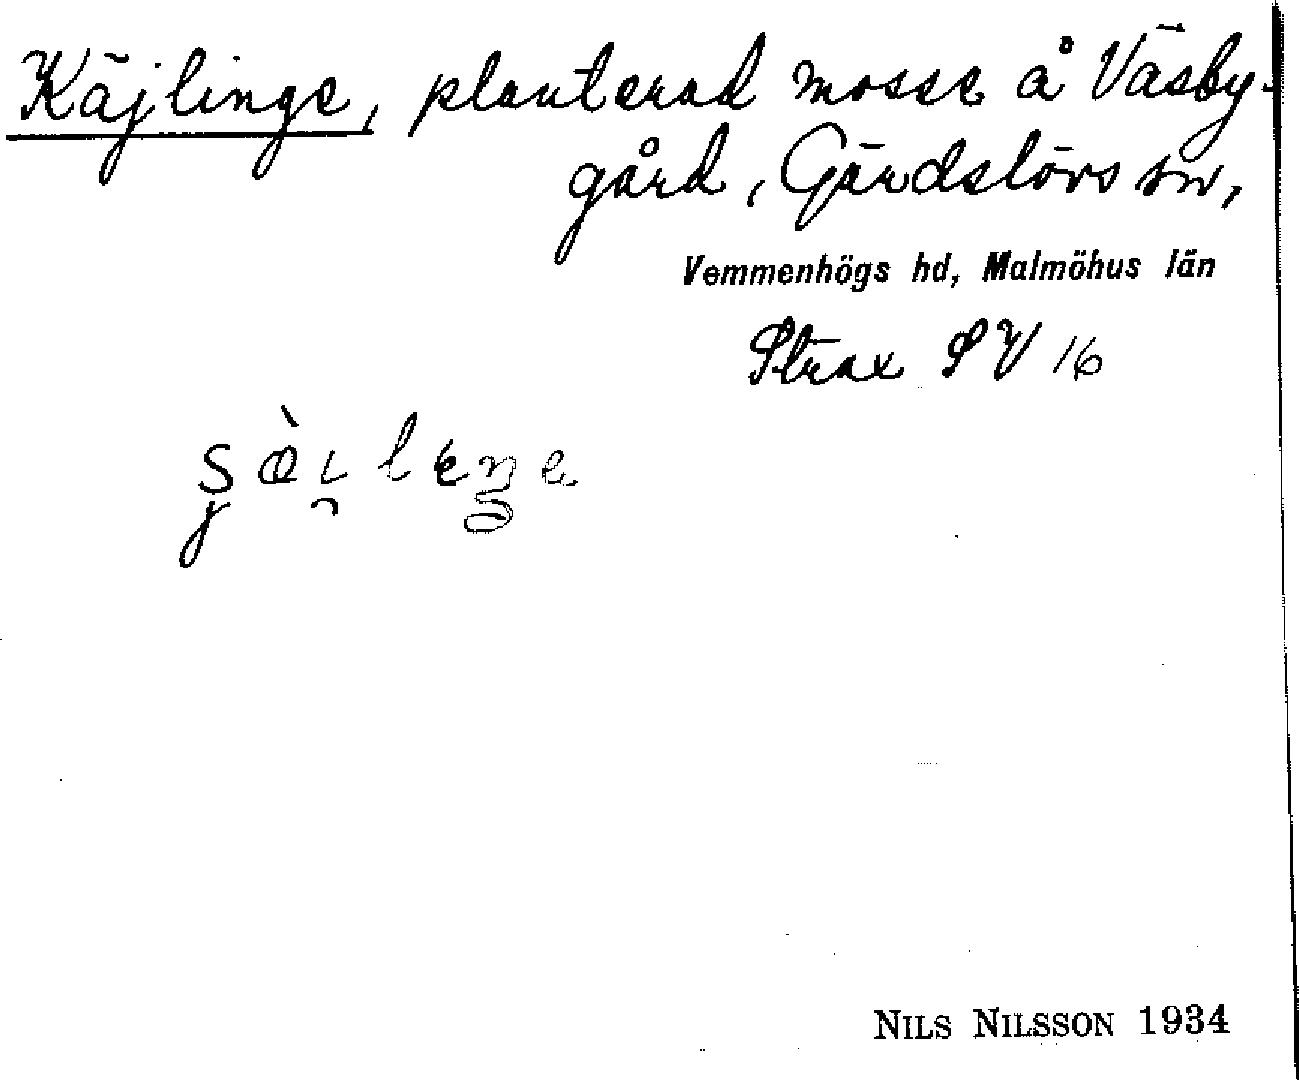 Käjlinge, planterad mosse å Väsby-
gård, Gärdslövs sn,
Vemmenhögs hd, Malmöhus län
Strax SV 16
NILS NILSSON 1934